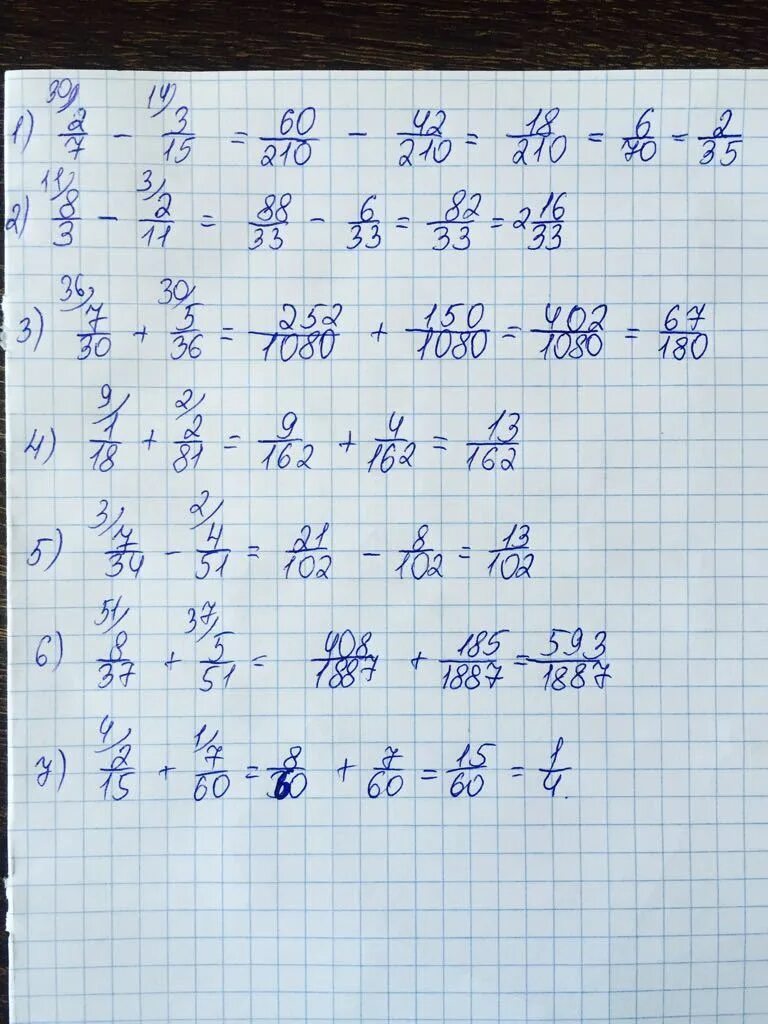 1) 30) 2/7 - 14) 3/15 = 60/210 - 42/210 = 18/210 = 6/70 = 2/35
2) 11) 8/3 - 3) 2/11 = 88/33 - 6/33 = 82/33 = 2 16/33
3) 36) 7/30 + 30) 5/36 = 252/1080 + 150/1080 = 402/1080 = 67/180
4) 9) 1/18 + 2) 2/81 = 9/162 + 4/162 = 13/162
5) 3) 7/34 - 2) 4/51 = 21/102 - 8/102 = 13/102
6) 51) 8/37 + 37) 5/51 = 408/1887 + 185/1887 = 593/1887
7) 4) 2/15 + 1) 7/60 = 8/60 + 7/60 = 15/60 = 1/4.